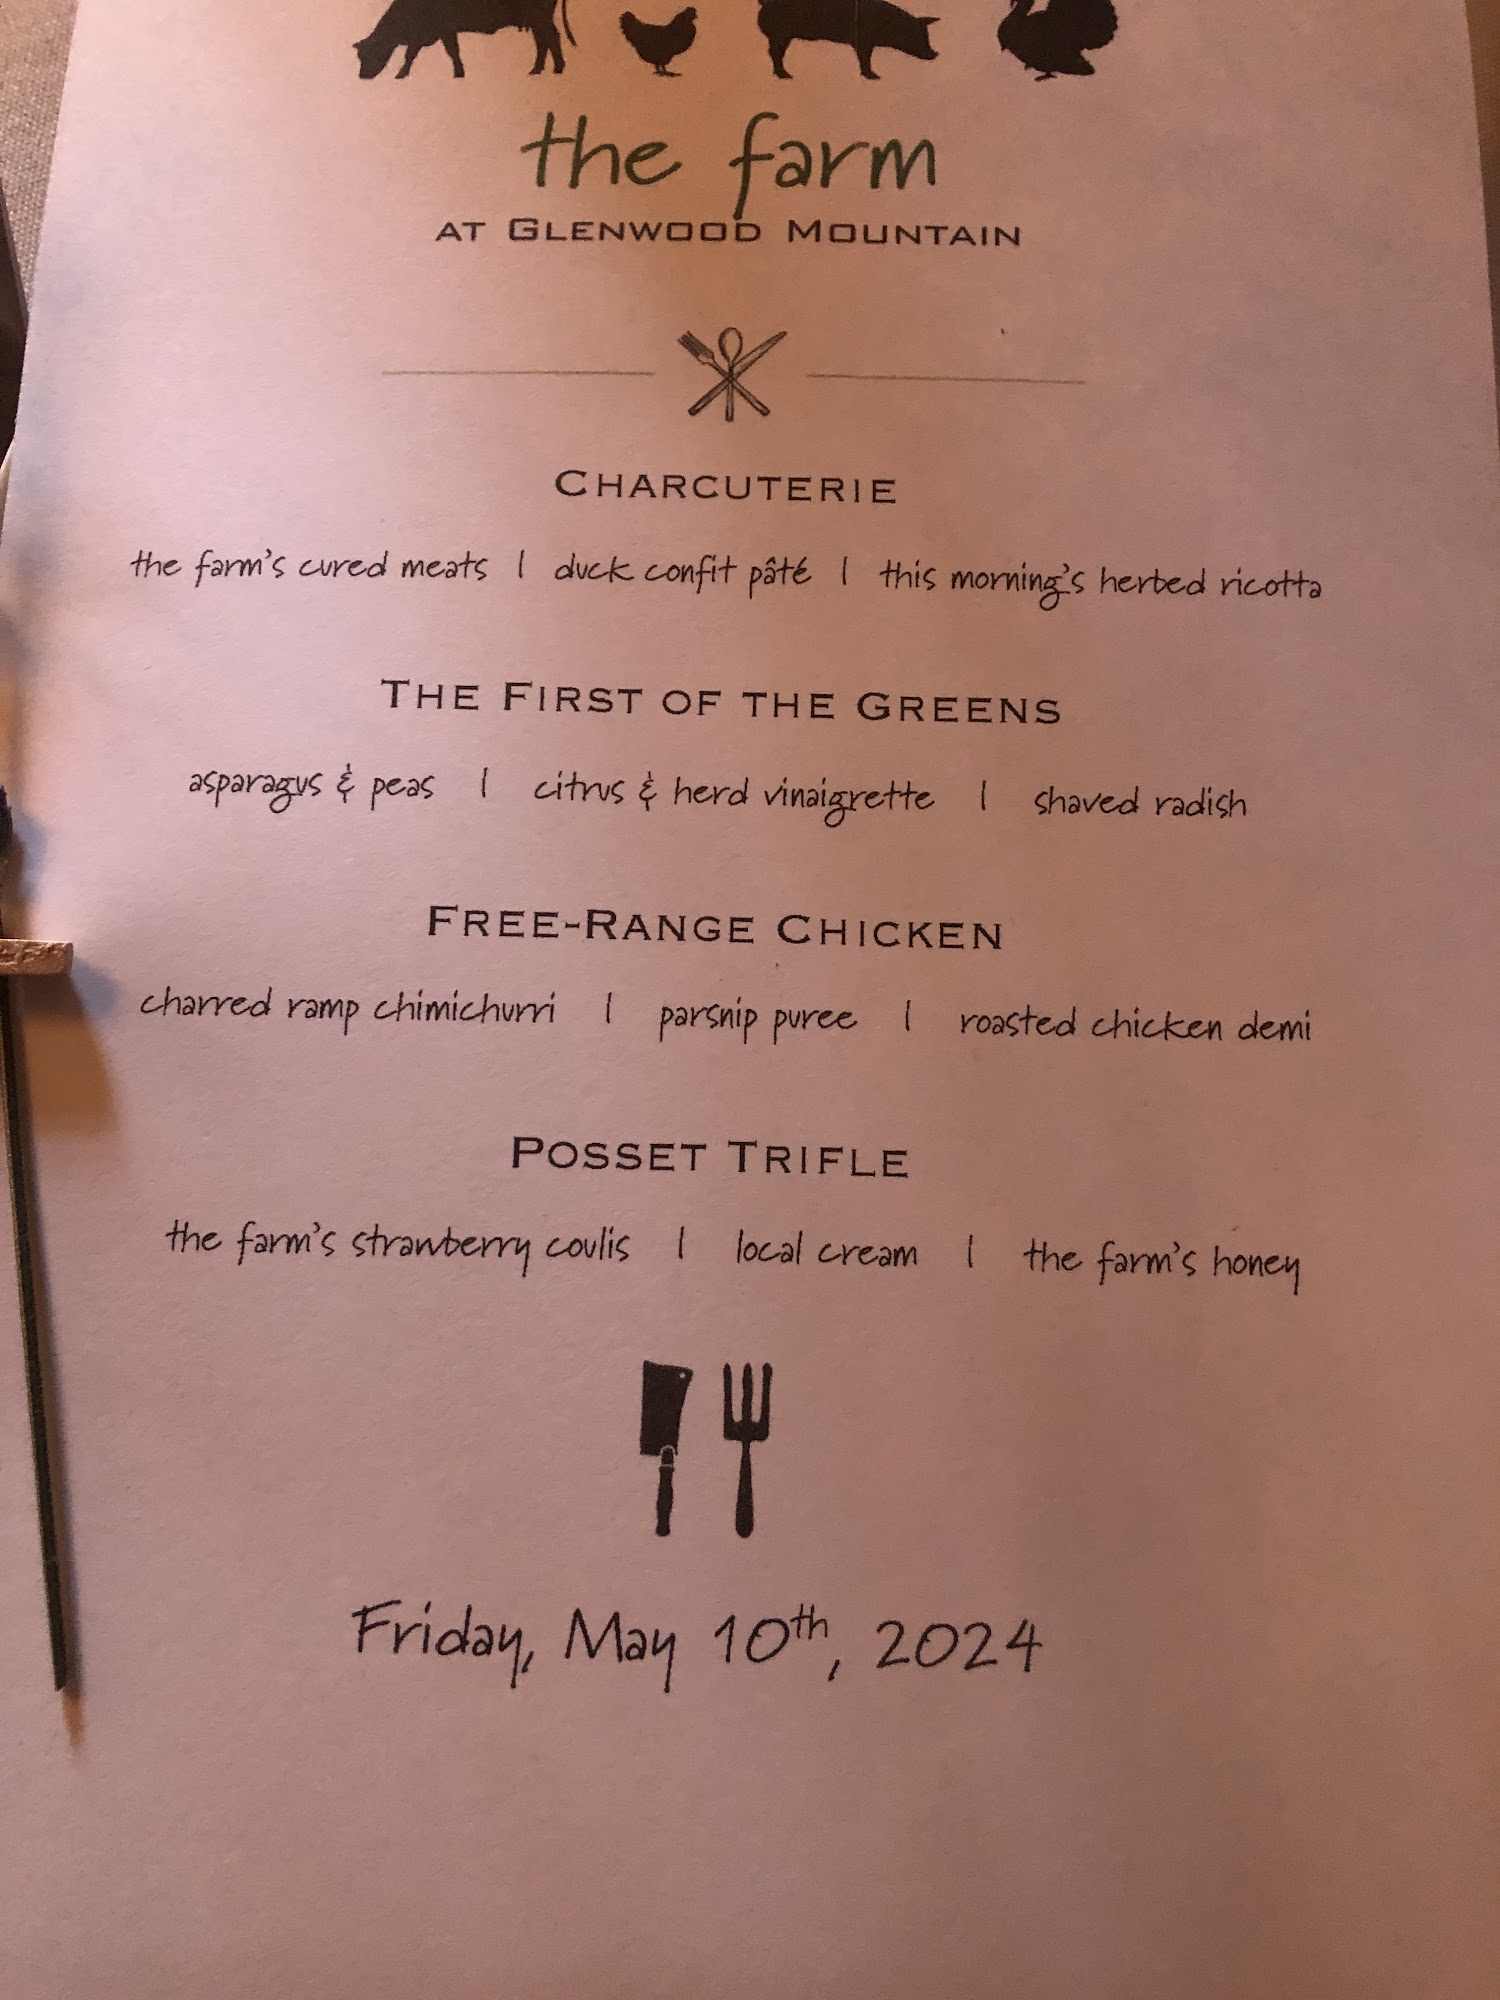 the farm
AT GLENWOOD MOUNTAIN
CHARCUTERIE
the farm's cured meats | duck confit pâté | this morning's herbed ricotta
THE FIRST OF THE GREENS
asparagus & peas | citrus & herd vinaigrette | shaved radish
FREE-RANGE CHICKEN
charred ramp chimichurri | parsnip puree | roasted chicken demi
POSSET TRIFLE
the farm's strawberry coulis | local cream | the farm's honey
Friday, May 10th, 2024